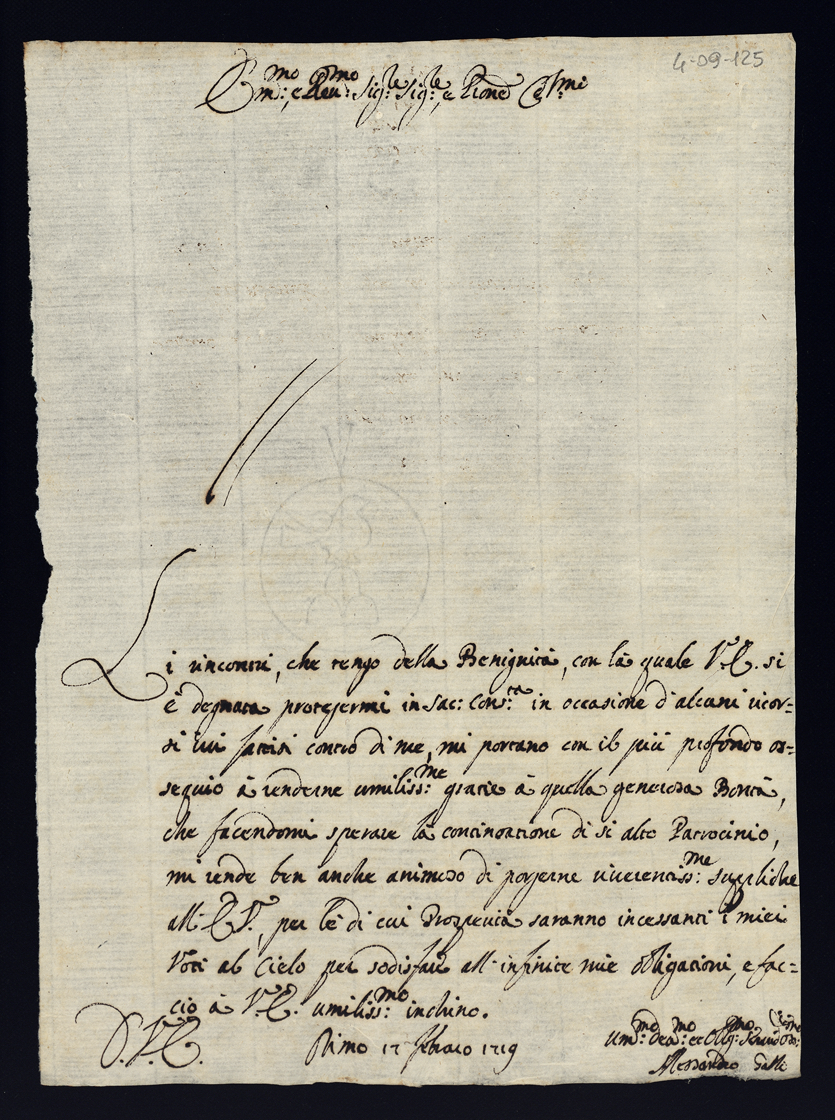 4-09-125
Em:mo e Reu:mo Sig:re Sig:re, e Prone Col:mo
Li rincontri, che tengo della Benignità, con la quale V.E. si
è degnata proteggermi in Sac: Cons:ta in occasione d'alcuni ricor-
si ivi fattisi contro di me, mi portano con il più profondo os-
sequio à renderne umiliss:me gratie à quella generosa Bontà,
che facendomi sperare la continoatione di si alto Patrocinio,
mi rende ben anche animoso di porgerne riverentiss:me suppliche
all' E.V., per le di cui Prosperità saranno incessanti i miei
Voti al Cielo per sodisfare all' infinite mie obligationi, e fac-
cio à V.E. umiliss:mo inchino.
D.V.E.
17 febraro 1719
Um:mo deu:mo et Obl:mo Seruid:
Alessandro Galli